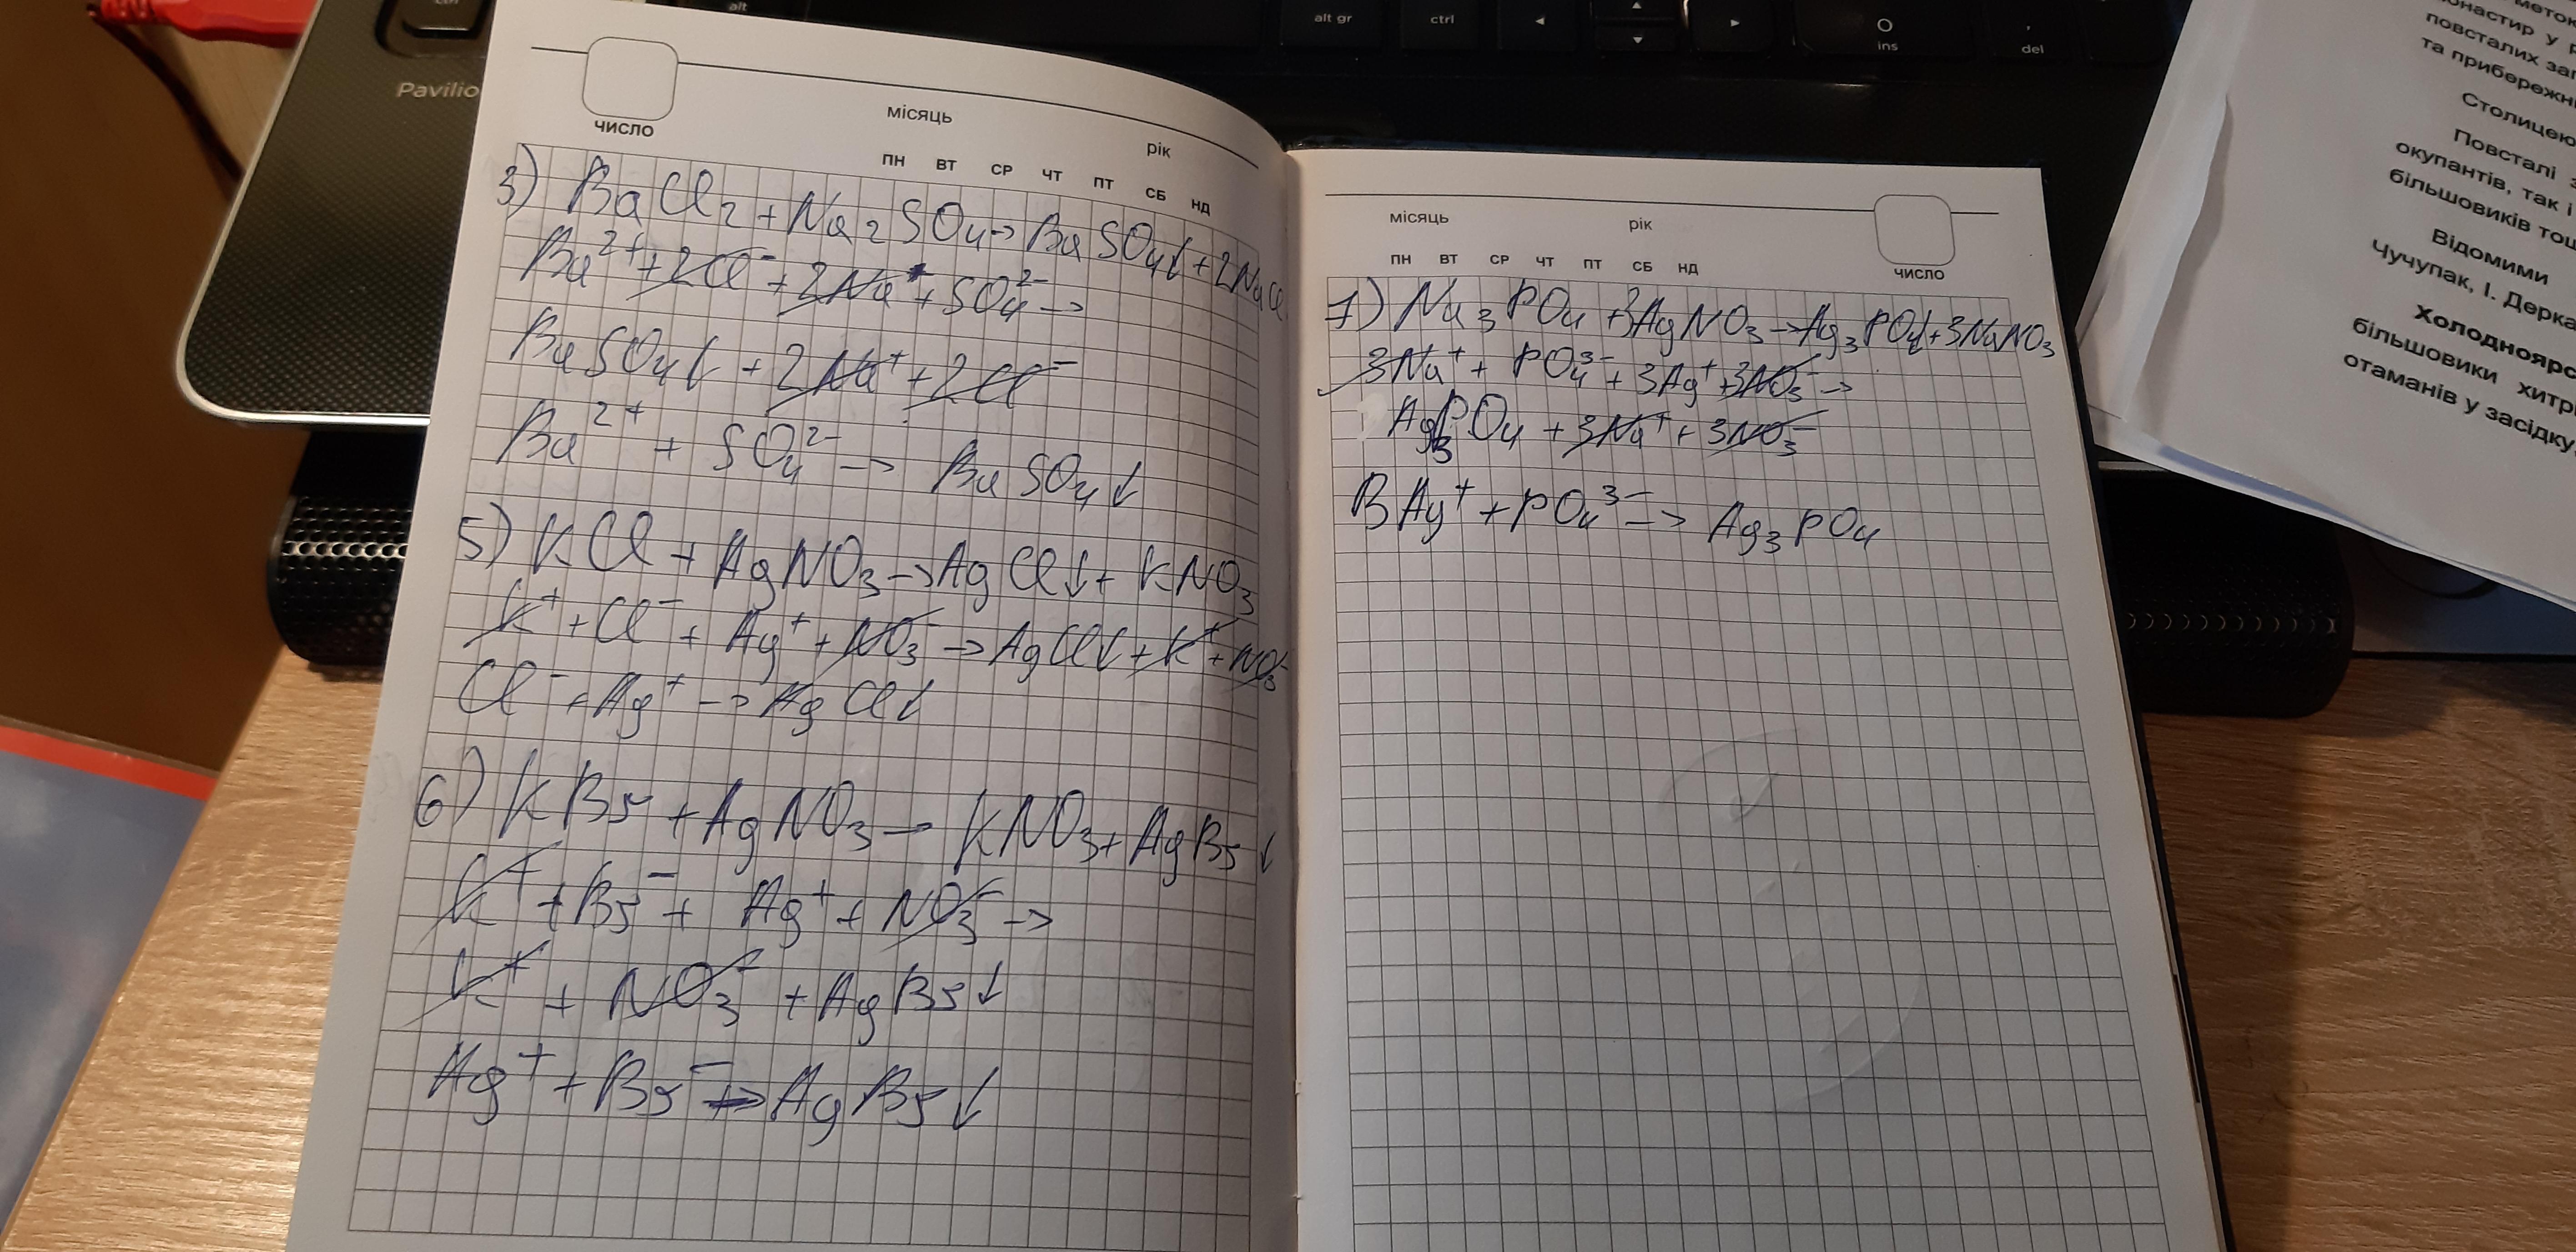 alt
alt gr
ctrl
ins
del
Pavilio
число
місяць
рік
пн вт ср чт пт сб нд
3) BaCl2 + Na2SO4 → BaSO4↓ + 2NaCl
Ba²⁺ + 2Cl⁻ + 2Na⁺ + SO4²⁻ →
BaSO4↓ + 2Na⁺ + 2Cl⁻
Ba²⁺ + SO4²⁻ → BaSO4↓
5) KCl + AgNO3 → AgCl↓ + KNO3
K⁺ + Cl⁻ + Ag⁺ + NO3⁻ → AgCl↓ + K⁺ + NO3⁻
Cl⁻ + Ag⁺ → AgCl↓
6) KBr + AgNO3 → KNO3 + AgBr↓
K⁺ + Br⁻ + Ag⁺ + NO3⁻ →
K⁺ + NO3⁻ + AgBr↓
Ag⁺ + Br⁻ → AgBr↓
місяць
рік
пн вт ср чт пт сб нд
число
7) Na3PO4 + 3AgNO3 → Ag3PO4↓ + 3NaNO3
3Na⁺ + PO4³⁻ + 3Ag⁺ + 3NO3⁻ →
Ag3PO4 + 3Na⁺ + 3NO3⁻
3Ag⁺ + PO4³⁻ → Ag3PO4
повсталих
та
Столицею
Повсталі
окупантів, так і
більшовиків
Відомими
Чучупак, І.
більшовики
отаманів у засідку